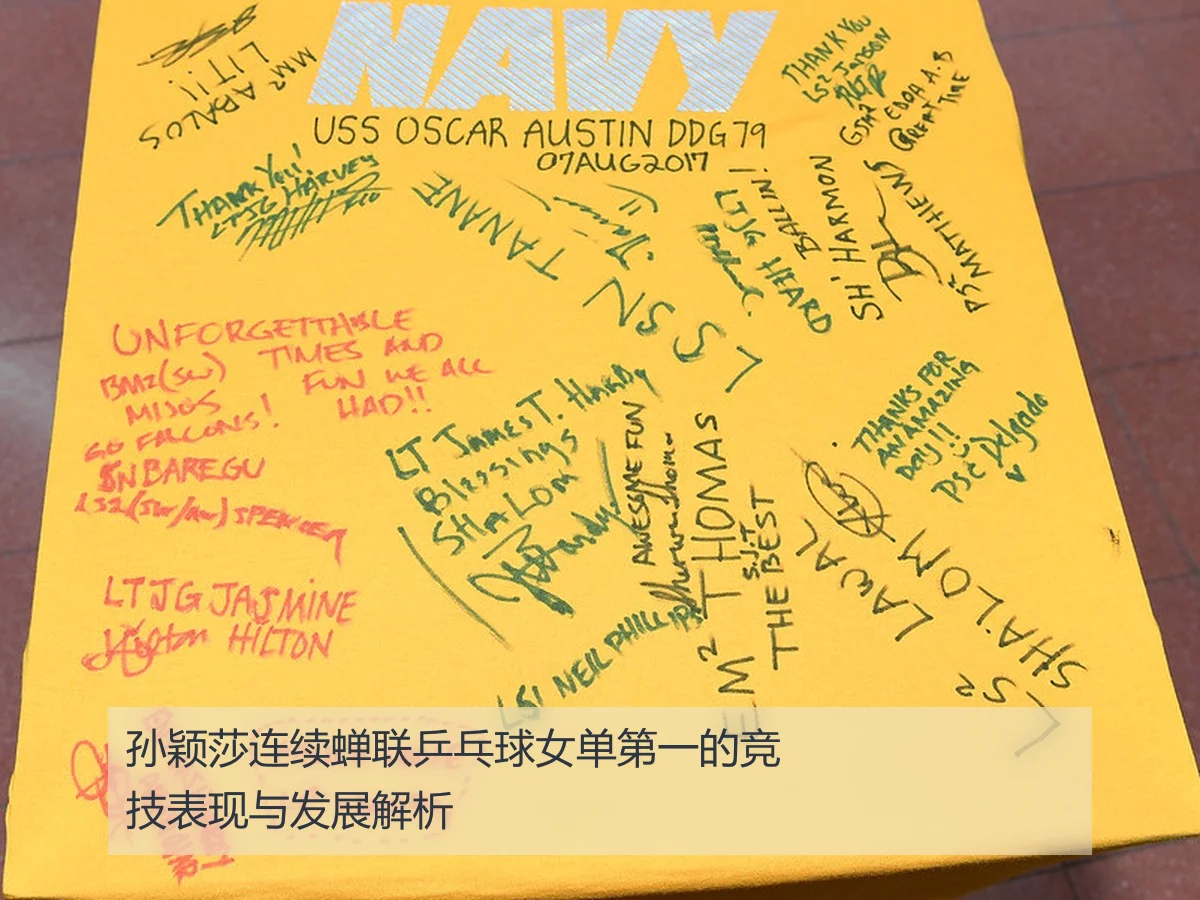 NAVY
USS OSCAR AUSTIN DDG79
07AUG2017
MM2 ABALOS
LIT!!
THANK YOU
LS2 JADSON
GSM2 EDOA A.B
GREAT TIME
THANK YOU!
LTJG HARVEY
LS SN TANANE
LTJG HEARD
BALLIN!
SH1 HARMON
PS2 MATHEWS
UNFORGETTABLE
TIMES AND
FUN WE ALL
HAD!!
BM2(SW)
MIJOS
GO FALCONS!
SN BAREGU
LS2(SW/AW) SPENCER
LT James T. Hardy
Blessings
SHALOM
AWESOME FUN
EM2 THOMAS
S.J.T
THE BEST
THANKS FOR
AN AMAZING
Day!!
PSC Delgado
LS2 SHALOM
LAWAL
LTJG JASMINE
HILTON
LS1 NEIL PHILLIPS
孙颖莎连续蝉联乒乓球女单第一的竞
技表现与发展解析